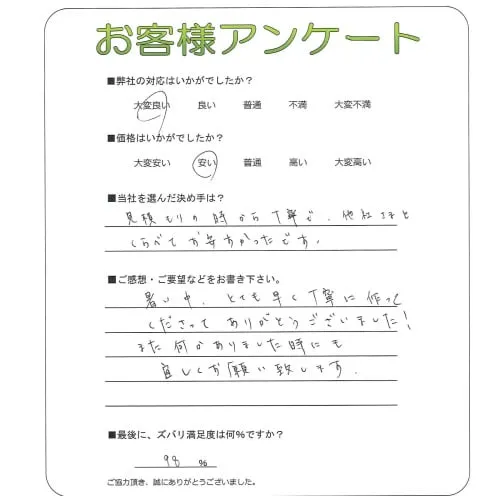 お客様アンケート
■弊社の対応はいかがでしたか？
大変良い 良い 普通 不満 大変不満
■価格はいかがでしたか？
大変安い 安い 普通 高い 大変高い
■当社を選んだ決め手は？
見積もりの時から丁寧で、他社さまと
くらべてお安すかったです。
■ご感想・ご要望などをお書き下さい。
暑い中、とても早く丁寧に作って
くださってありがとうございました！
また何かありました時にも
宜しくお願い致します。
■最後に、ズバリ満足度は何%ですか？
98 %
ご協力頂き、誠にありがとうございました。